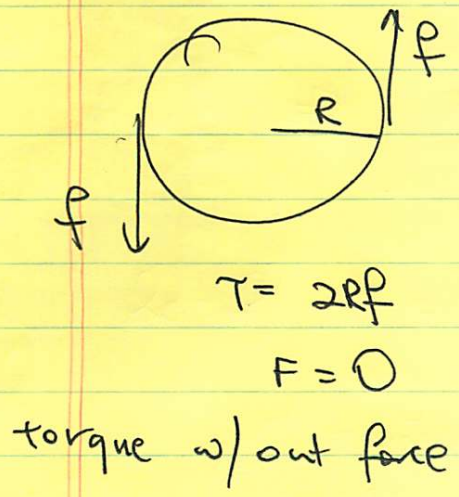 f
R
f
τ = 2Rf
F = 0
torque w/out force